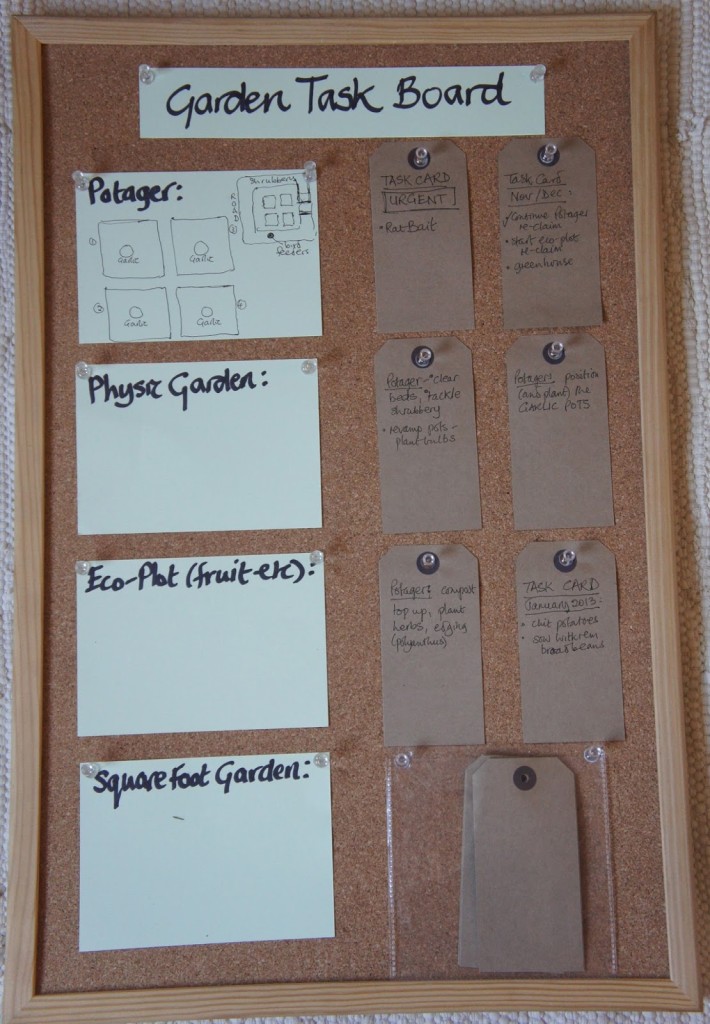 Garden Task Board
Potager:
Shrubbery
ROAD
bird
feeders
①
Garlic
②
Garlic
③
Garlic
④
Garlic
TASK CARD
URGENT
• Rat Bait
Task Card
Nov/Dec:
✓ Continue Potager
re-claim
• start eco-plot
re-claim
• greenhouse
Physic Garden:
Potager - *clear
beds, *tackle
shrubbery
• revamp pots -
plant bulbs
Potager, position
(and plant) the
GARLIC POTS
Eco-Plot (fruit-etc):
Potager: compost
top up, plant
herbs, edging
(polyanthus)
TASK CARD
January 2013:
• chit potatoes
• sow
broad beans
Square Foot Garden: